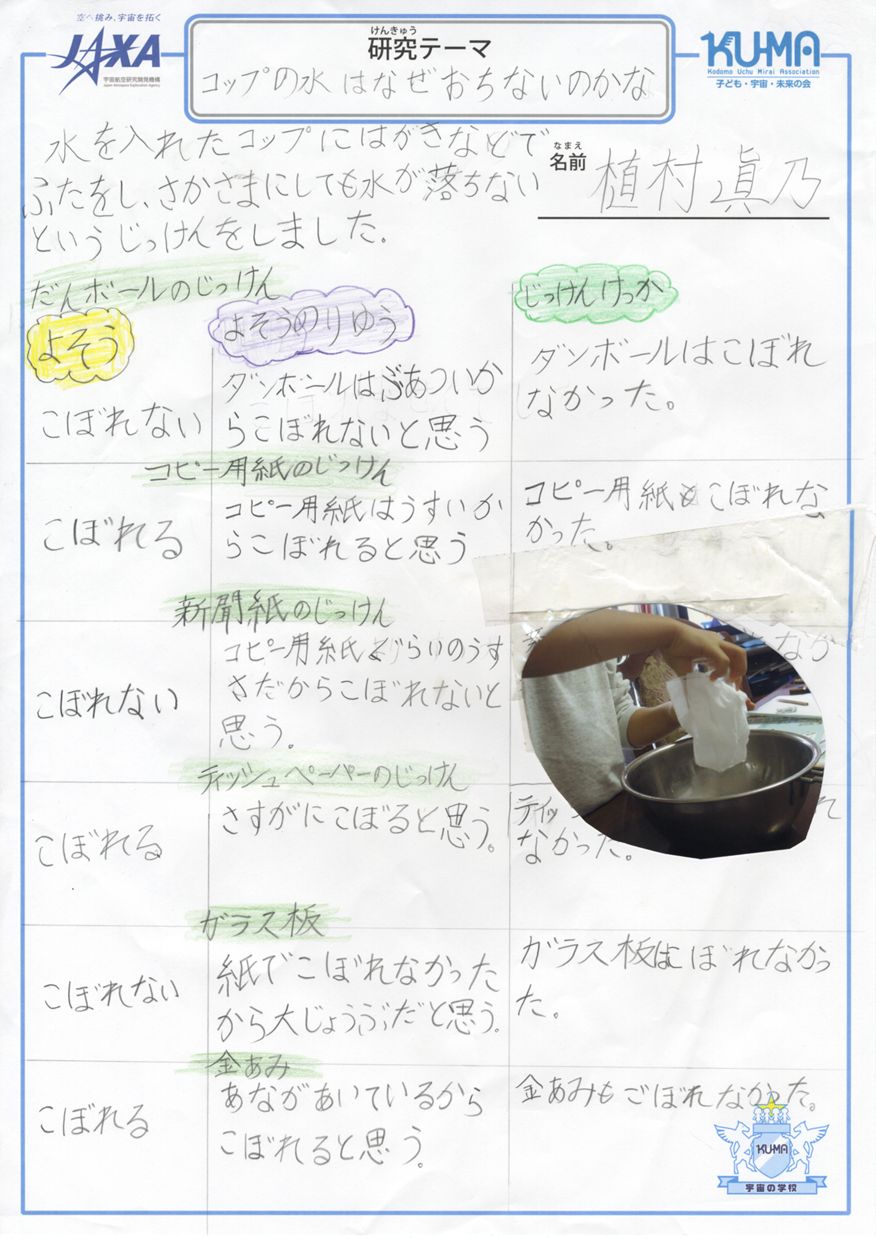 空へ挑み、宇宙を拓く
JAXA
宇宙航空研究開発機構
Japan Aerospace Exploration Agency
けんきゅう
研究テーマ
コップの水はなぜおちないのかな
KU-MA
Kodomo Uchu Mirai Association
子ども・宇宙・未来の会
水を入れたコップにはがきなどで
ふたをし、さかさまにしても水が落ちない
というじっけんをしました。
なまえ
名前
植村眞乃
だんボールのじっけん
よそう
よそうのりゆう
じっけんけっか
こぼれない
ダンボールはぶあついか
らこぼれないと思う
ダンボールはこぼれ
なかった。
コピー用紙のじっけん
こぼれる
コピー用紙はうすいか
らこぼれると思う
コピー用紙もこぼれな
かった。
新聞紙のじっけん
こぼれない
コピー用紙ぐらいのうす
さだからこぼれないと
思う。
なか
ティッシュペーパーのじっけん
こぼれる
さすがにこぼると思う。
ティッ
れ
なかった。
ガラス板
こぼれない
紙でこぼれなかった
から大じょうぶだと思う。
ガラス板はこぼれなかっ
た。
金あみ
こぼれる
あながあいているから
こぼれると思う。
金あみもこぼれなかった。
KU-MA
宇宙の学校